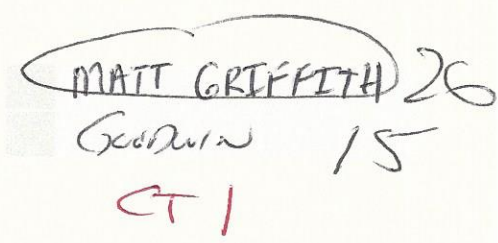 MATT GRIFFITH 26
GOODWIN 15
CT 1